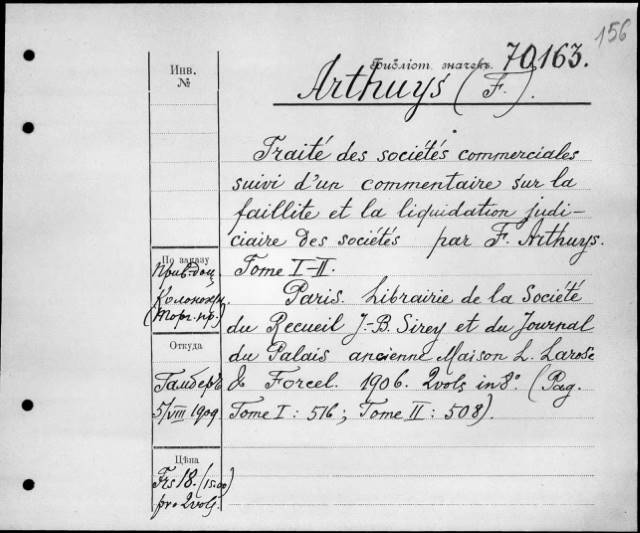 156
Библіот. значекъ 70163.
Инв.
№
Arthuys (F.).
Traité des sociétés commerciales
suivi d'un commentaire sur la
faillite et la liquidation judi-
ciaire des sociétés par F. Arthuys.
По заказу
Прив.-доц.
Tome I-II.
Paris. Librairie de la Société
(Торг. пр.)
du Recueil J.-B. Sirey et du Journal
Откуда
du Palais ancienne Maison L. Larose
Гамберъ
& Forcel. 1906. 2vols in 8°. (Pag.
5/VIII 1909
Tome I: 516; Tome II: 508).
Цѣна
Frs 18. (15.00)
pro 2vols.